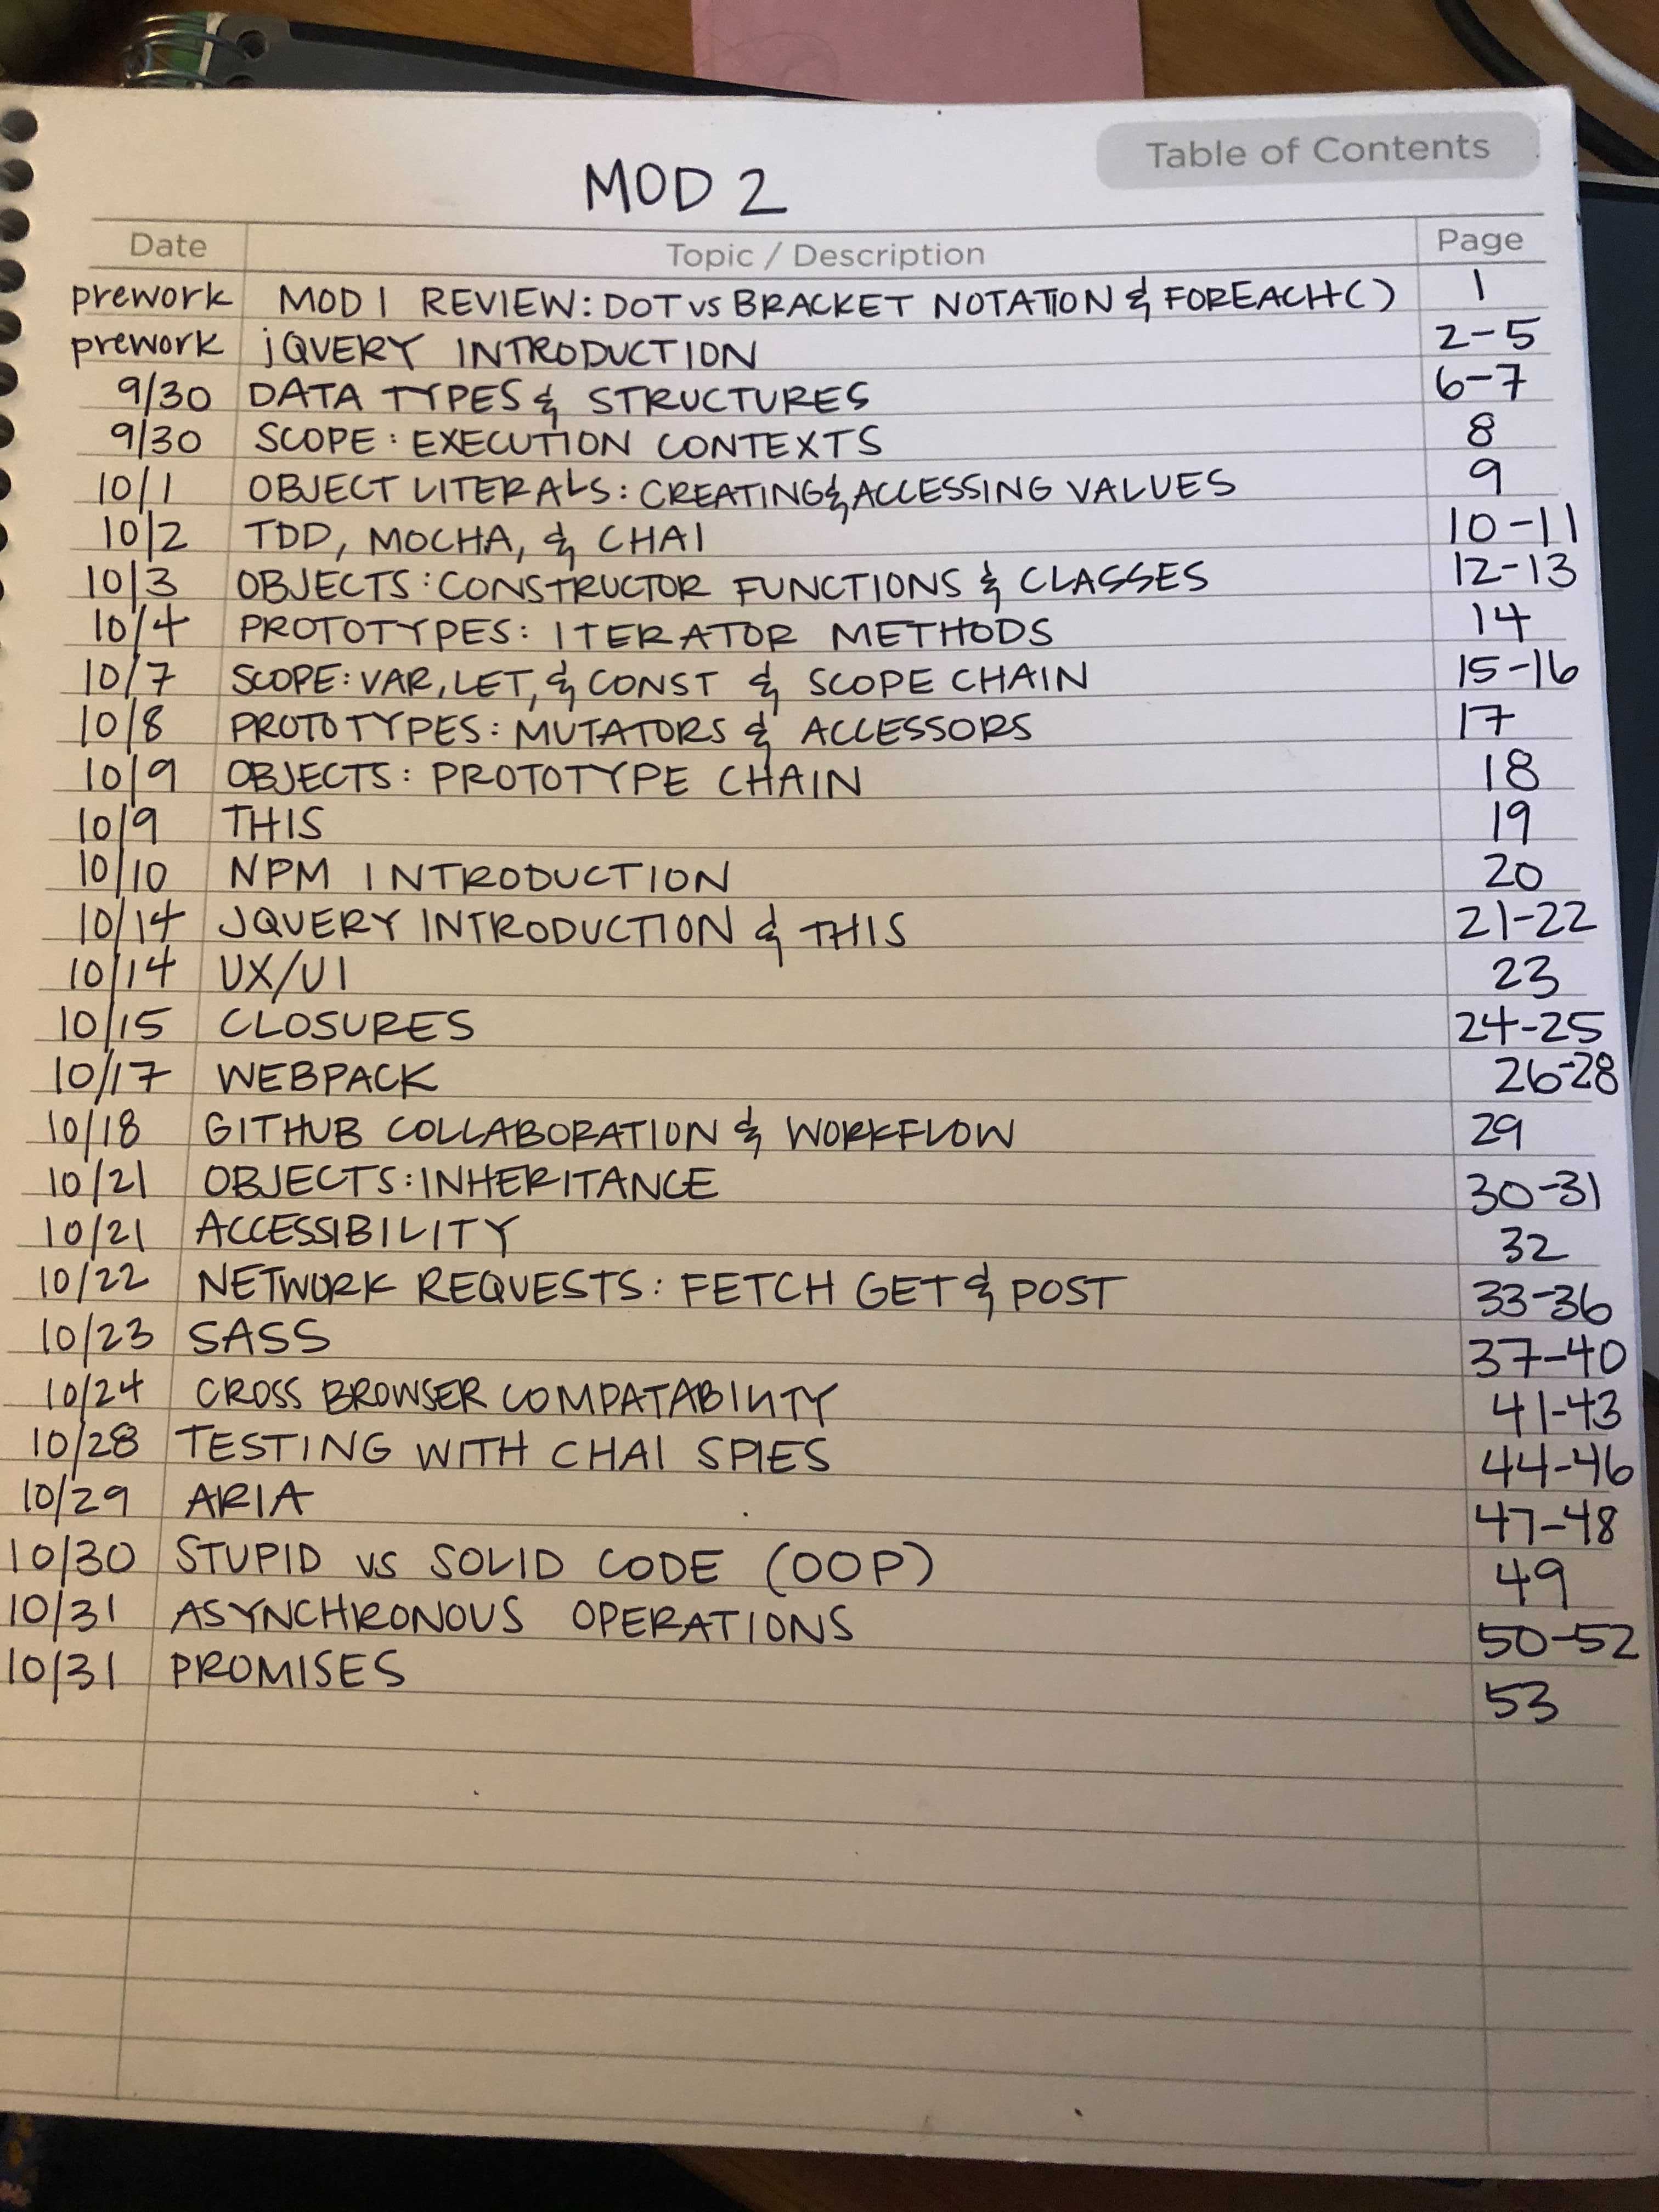 Table of Contents
MOD 2
Date Topic / Description Page
prework MOD 1 REVIEW: DOT vs BRACKET NOTATION & FOREACH() 1
prework jQUERY INTRODUCTION 2-5
9/30 DATA TYPES & STRUCTURES 6-7
9/30 SCOPE: EXECUTION CONTEXTS 8
10/1 OBJECT LITERALS: CREATING & ACCESSING VALUES 9
10/2 TDD, MOCHA, & CHAI 10-11
10/3 OBJECTS: CONSTRUCTOR FUNCTIONS & CLASSES 12-13
10/4 PROTOTYPES: ITERATOR METHODS 14
10/7 SCOPE: VAR, LET, & CONST & SCOPE CHAIN 15-16
10/8 PROTOTYPES: MUTATORS & ACCESSORS 17
10/9 OBJECTS: PROTOTYPE CHAIN 18
10/9 THIS 19
10/10 NPM INTRODUCTION 20
10/14 JQUERY INTRODUCTION & THIS 21-22
10/14 UX/UI 23
10/15 CLOSURES 24-25
10/17 WEBPACK 26-28
10/18 GITHUB COLLABORATION & WORKFLOW 29
10/21 OBJECTS: INHERITANCE 30-31
10/21 ACCESSIBILITY 32
10/22 NETWORK REQUESTS: FETCH GET & POST 33-36
10/23 SASS 37-40
10/24 CROSS BROWSER COMPATABILITY 41-43
10/28 TESTING WITH CHAI SPIES 44-46
10/29 ARIA 47-48
10/30 STUPID vs SOLID CODE (OOP) 49
10/31 ASYNCHRONOUS OPERATIONS 50-52
10/31 PROMISES 53